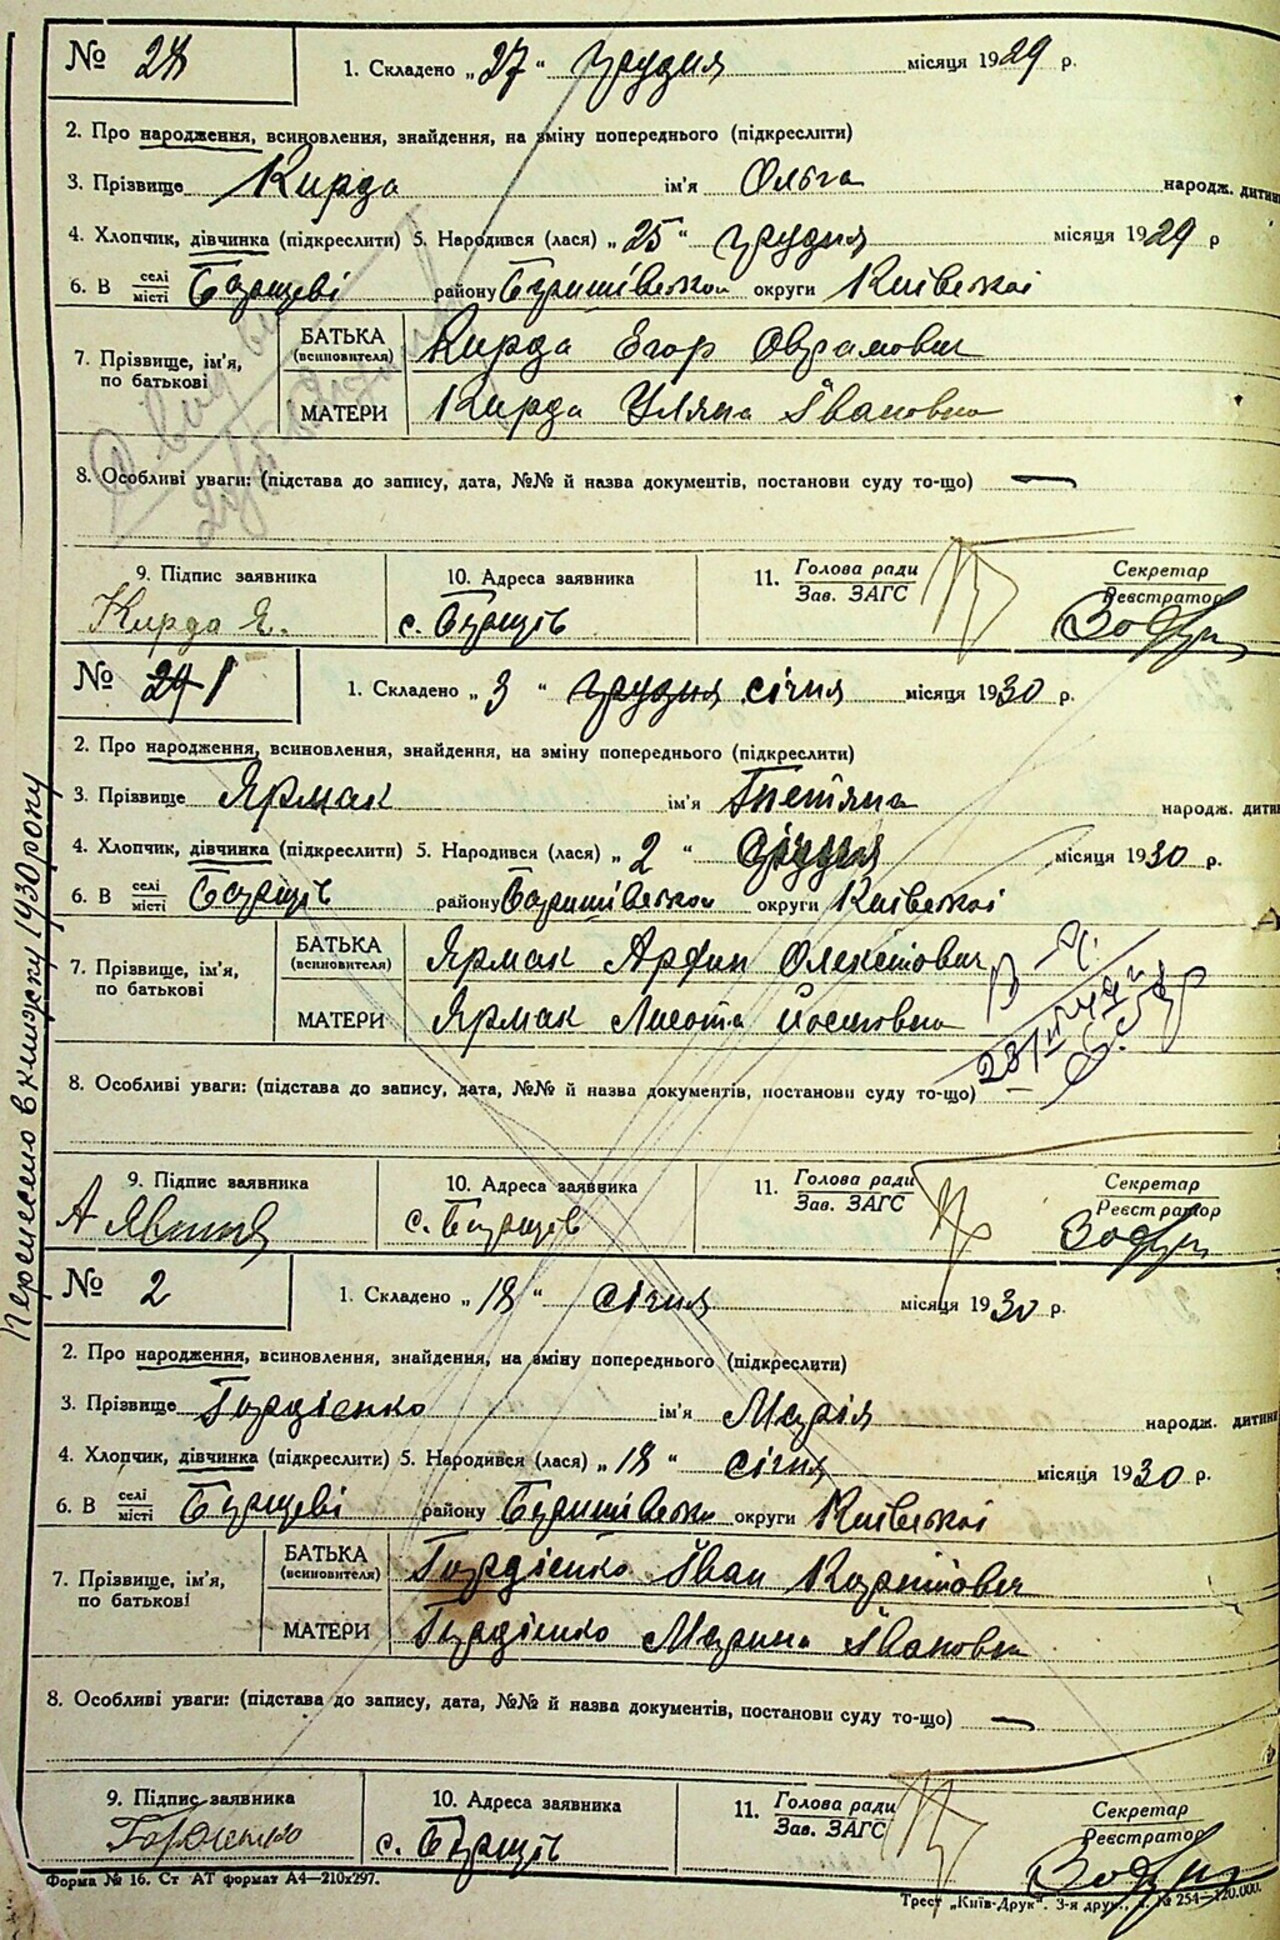 № 28
1. Складено „27“ грудня місяця 1929 р.
2. Про народження, всиновлення, знайдення, на зміну попереднього (підкреслити)
3. Прізвище Кирда ім'я Ольга народж. дитини
4. Хлопчик, дівчинка (підкреслити) 5. Народився (лася) „25“ грудня місяця 1929 р
6. В селі місті Борщеві району Баришівськом округи Київської
7. Прізвище, ім'я, по батькові
БАТЬКА (всиновителя) Кирда Егор Оврамович
МАТЕРИ Кирда Уляна Івановна
8. Особливі уваги: (підстава до запису, дата, №№ й назва документів, постанови суду то-що) —
9. Підпис заявника 10. Адреса заявника 11. Голова ради Зав. ЗАГС Секретар Реєстратор
Кирда Я. с. Борщів
№ 29 1
1. Складено „3“ грудня січня місяця 1930 р.
2. Про народження, всиновлення, знайдення, на зміну попереднього (підкреслити)
3. Прізвище Ярмак ім'я Тетяна народж. дитини
4. Хлопчик, дівчинка (підкреслити) 5. Народився (лася) „2“ місяця 1930 р.
6. В селі місті Борщів району Баришівськом округи Київської
7. Прізвище, ім'я, по батькові
БАТЬКА (всиновителя) Ярмак Олексійович
МАТЕРИ Ярмак
8. Особливі уваги: (підстава до запису, дата, №№ й назва документів, постанови суду то-що)
9. Підпис заявника 10. Адреса заявника 11. Голова ради Зав. ЗАГС Секретар Реєстратор
с. Борщів
Перенесено в книжку 1930 року
№ 2
1. Складено „18“ січня місяця 1930 р.
2. Про народження, всиновлення, знайдення, на зміну попереднього (підкреслити)
3. Прізвище Гордієнко ім'я Марія народж. дитини
4. Хлопчик, дівчинка (підкреслити) 5. Народився (лася) „18“ січня місяця 1930 р.
6. В селі місті Борщеві району округи Київської
7. Прізвище, ім'я, по батькові
БАТЬКА (всиновителя) Гордієнко Іван Карпович
МАТЕРИ Гордієнко Марина Івановна
8. Особливі уваги: (підстава до запису, дата, №№ й назва документів, постанови суду то-що) —
9. Підпис заявника 10. Адреса заявника 11. Голова ради Зав. ЗАГС Секретар Реєстратор
Гордієнко с. Борщів
Форма № 16. Ст АТ формат А4—210х297.
Трест „Київ-Друк“. 3-я друк., № 254—120.000.